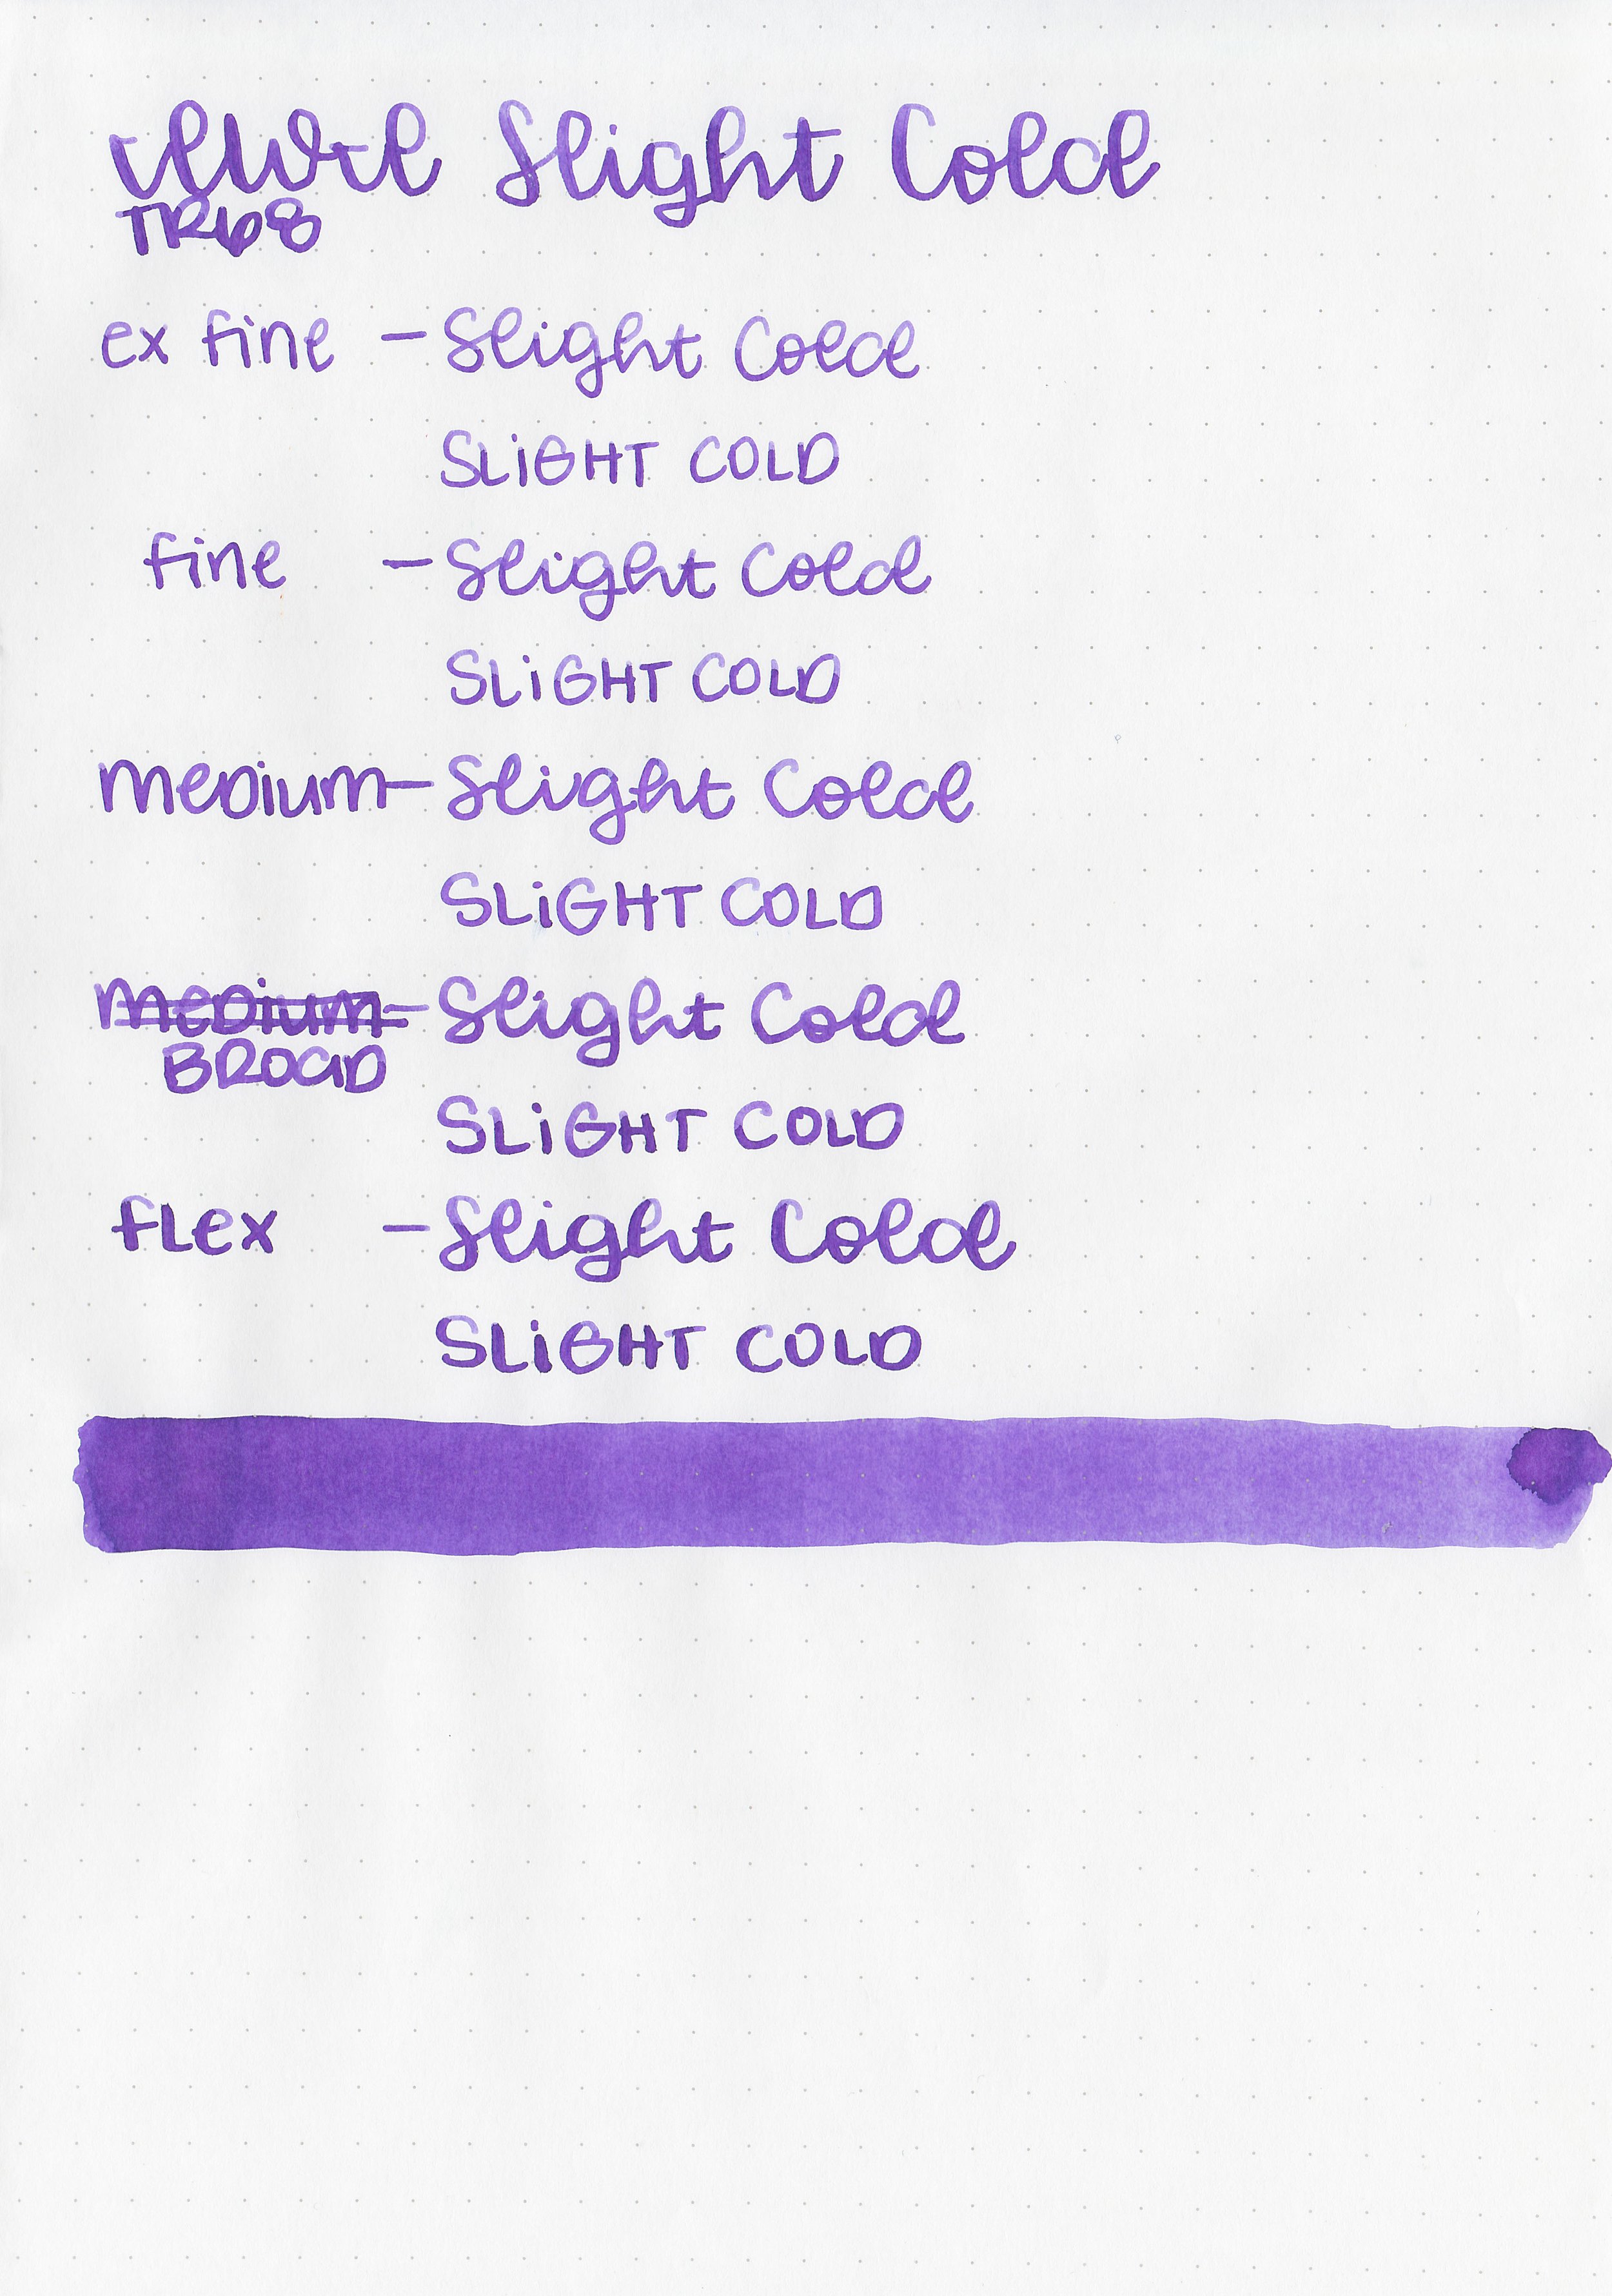 Slight Cold
TR68
ex fine - Slight Cold
SLiGHT COLD
fine - Slight Cold
SLiGHT COLD
meDium - Slight Cold
SLiGHT COLD
meDium - Slight Cold
BROaD
SLiGHT COLD
fLex - Slight Cold
SLiGHT COLD